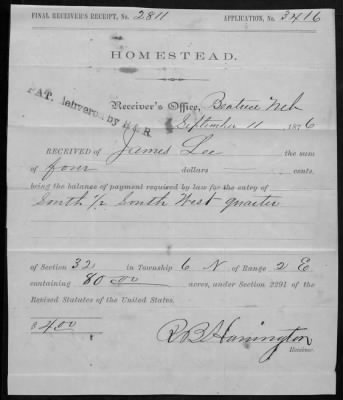 FINAL RECEIVER'S RECEIPT, No. 2811 APPLICATION, No. 3416
HOMESTEAD.
PAT. Delivered by H & R
Receiver's Office, Beatrice Neb
September 11 1876
RECEIVED OF James Lee the sum
of four dollars cents,
being the balance of payment required by law for the entry of
South 1/2 South West quarter
of Section 32 in Township 6 N. of Range 2 E
containing 80 00 acres, under Section 2291 of the
Revised Statutes of the United States.
$ 4.00
R B Harrington
Receiver.